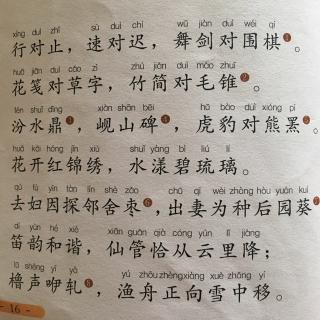 xíng duì zhǐ sù duì chí wǔ jiàn duì wéi qí
行对止，速对迟，舞剑对围棋❶。
huā jiān duì cǎo zì zhú jiǎn duì máo zhuī
花笺对草字，竹简对毛锥❷。
fén shuǐ dǐng xiàn shān bēi hǔ bào duì xióng pí
汾水鼎❸，岘山碑❹，虎豹对熊罴❺。
huā kāi hóng jǐn xiù shuǐ yàng bì liú lí
花开红锦绣，水漾碧琉璃。
qù fù yīn tàn lín shè zǎo chū qī wèi zhòng hòu yuán kuí
去妇因探邻舍枣❻，出妻为种后园葵❼。
dí yùn hé xié xiān guǎn qià cóng yún lǐ jiàng
笛韵和谐，仙管恰从云里降；
lǔ shēng yī yà yú zhōu zhèng xiàng xuě zhōng yí
橹声咿轧❽，渔舟正向雪中移。
- 16 -